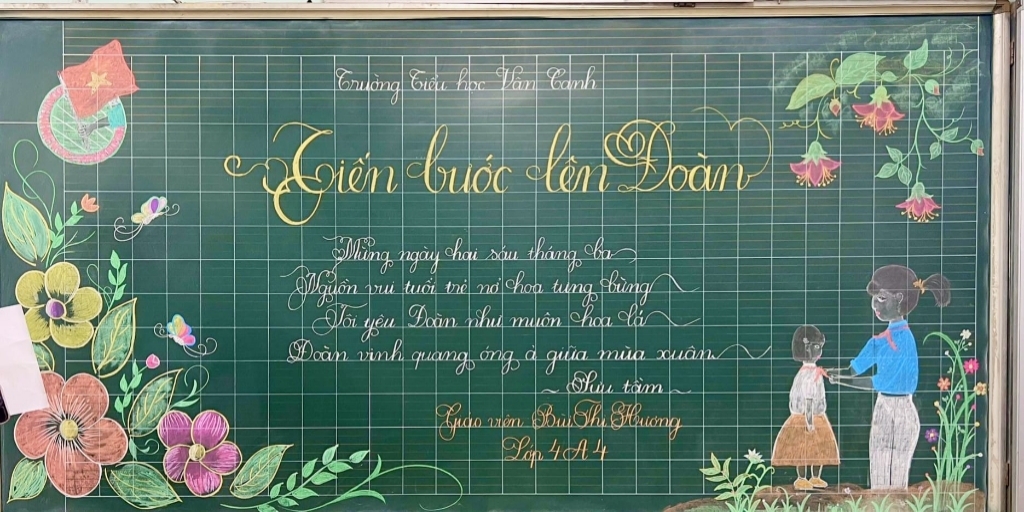 Trường Tiểu học Vân Canh
Tiến bước lên Đoàn
Mừng ngày hai sáu tháng ba
Nguồn vui tuổi trẻ nở hoa tưng bừng
Tôi yêu Đoàn như muôn hoa lá
Đoàn vinh quang óng ả giữa mùa xuân
~ Sưu tầm ~
Giáo viên Bùi Thị Hương
Lớp 4A4